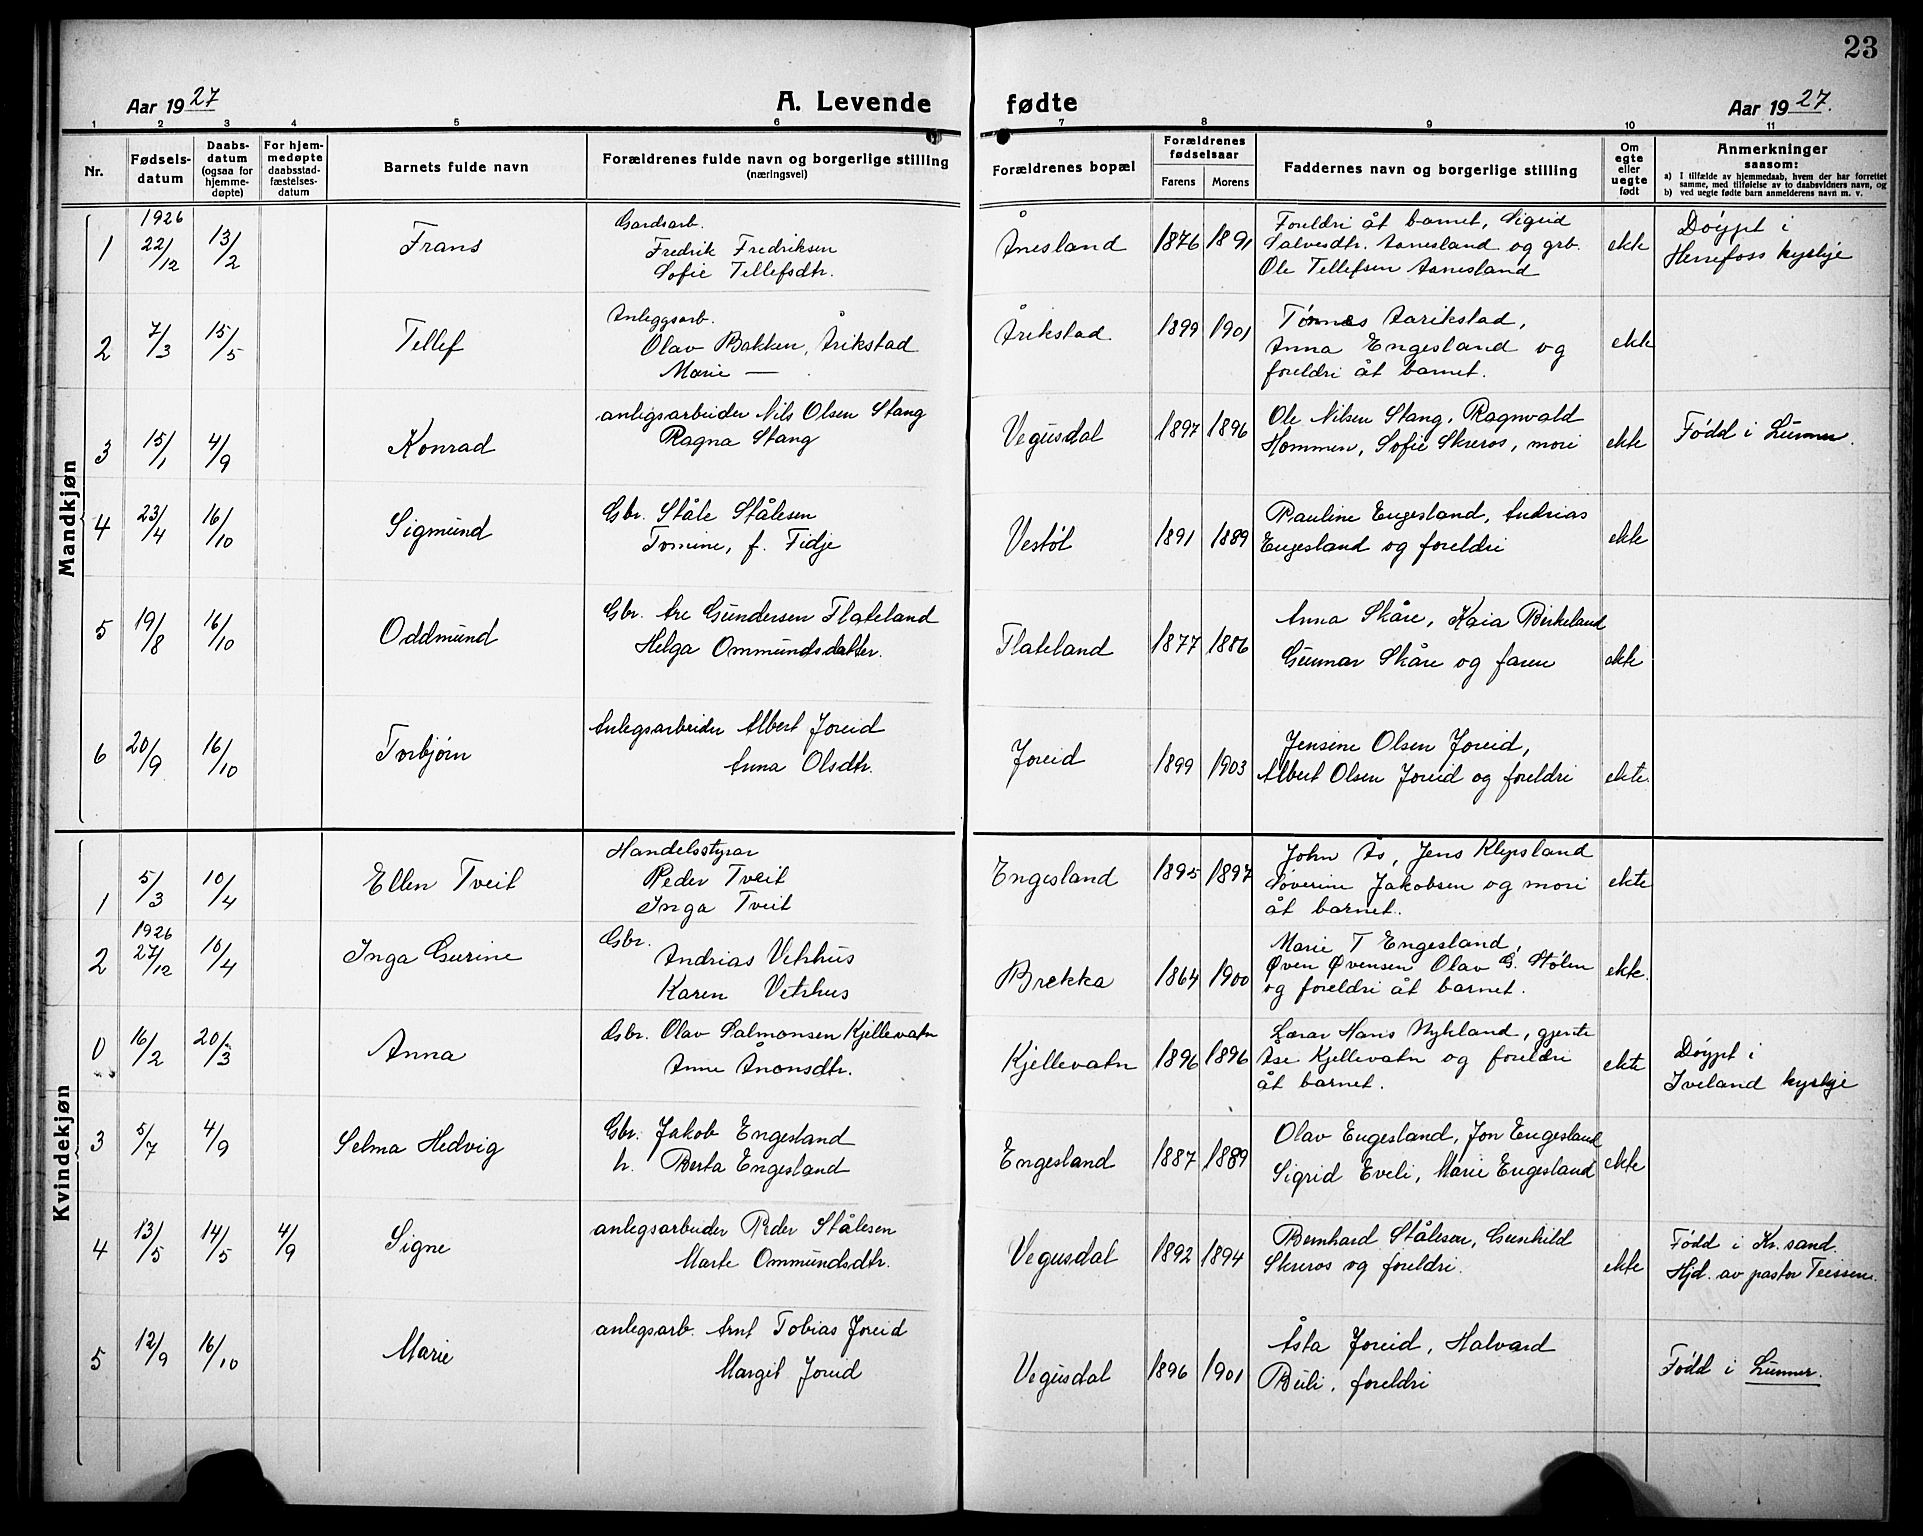 23
Aar 1927
A. Levende fødte
Aar 1927.
1 2 3 4 5 6 7 8 9 10 11
Nr.
Fødsels-
datum
Daabs-
datum
(ogsaa for
hjemme-
døpte)
For hjem-
medøpte
daabsstad-
fæstelses-
datum
Barnets fulde navn
Forældrenes fulde navn og borgerlige stilling
(næringsvei)
Forældrenes bopæl
Forældrenes
fødselsaar
Farens Morens
Faddernes navn og borgerlige stilling
Om
egte
eller
uegte
født
Anmerkninger
saasom:
a) I tilfælde av hjemmedaab, hvem der har forrettet
samme, med tilføielse av to daabsvidners navn, og
b) ved uegte fødte barn anmelderens navn m. v.
Mandkjøn
1 1926 22/12 13/2 Frans
Gardsarb.
Fredrik Fredriksen
Sofie Tellefsdtr.
Ånesland 1876 1891
Foreldri åt barnet, Sigrid
Salvesdtr. Aanesland og grb.
Ole Tellefsen Aanesland
ekte
Døypt i
Herefoss kyrkje
2 7/3 15/5 Tellef
Anleggsarb.
Olav Bakken, Årikstad
Marie —
Årikstad 1899 1901
Tønnes Aarikstad,
Anna Engesland og
foreldri åt barnet.
ekte
3 15/1 4/9 Konrad
anlegsarbeider Nils Olsen Stang
Ragna Stang
Vegusdal 1897 1896
Ole Nilsen Stang, Ragnvald
Hommen, Sofie Skreros, mori
ekte
Fødd i Lunner.
4 23/4 16/10 Sigmund
Gbr. Ståle Stålesen
Tomine, f. Fidje
Vestøl 1891 1889
Pauline Engesland, Andrias
Engesland og foreldri
ekte
5 19/8 16/10 Oddmund
Gbr. Are Gundersen Flateland
Helga Ommundsdatter.
Flateland 1877 1886
Anna Skåre, Kaia Birkeland
Gunnar Skåre og faren
ekte
6 20/9 16/10 Torbjørn
Anlegsarbeider Albert Joreid
Anna Olsdtr.
Joreid 1899 1903
Jensine Olsen Joreid,
Albert Olsen Joreid og foreldri
ekte.
Kvindekjøn
1 5/3 10/4 Ellen Tveit
Handelsstyrar
Peder Tveit
Inga Tveit
Engesland 1895 1897
John Ås, Jens Klepsland
Søverine Jakobsen og mori
åt barnet.
ekte
2 1926 27/12 10/4 Inga Gurine
Gbr.
Andrias Vetrhus
Karen Vetrhus
Brekka 1864 1900
Marie T Engesland,
Øven Øvensen Olav G. Stølen
og foreldri åt barnet.
ekte.
0 16/2 20/3 Anna
Gbr. Olav Salmonsen Kjellevatn
Anne Ånonsdtr.
Kjellevatn 1896 1896
Lærar Hans Nykland, gjente
Åse Kjellevatn og foreldri
åt barnet.
ekte
Døypt i
Iveland kyrkje
3 5/7 4/9 Selma Hedvig
Gbr. Jakob Engesland
h. Berta Engesland
Engesland 1887 1889
Olav Engesland, Jon Engesland
Sigrid Eveli, Marie Engesland
ekte
4 13/5 14/5 4/9 Signe
anlegsarbeider Peder Stålesen
Marte Ommundsdtr.
Vegusdal 1892 1894
Bernhard Stålesen, Gunhild
Skreros og foreldri.
ekte
Fødd i Kr.sand.
Hjd. av pastor Teissen.
5 12/9 16/10 Marie
anlegsarb. Arnt Tobias Joreid
Margit Joreid
Vegusdal 1896 1901
Åsta Joreid, Halvard
Buli, foreldri
Fødd i Lunner.